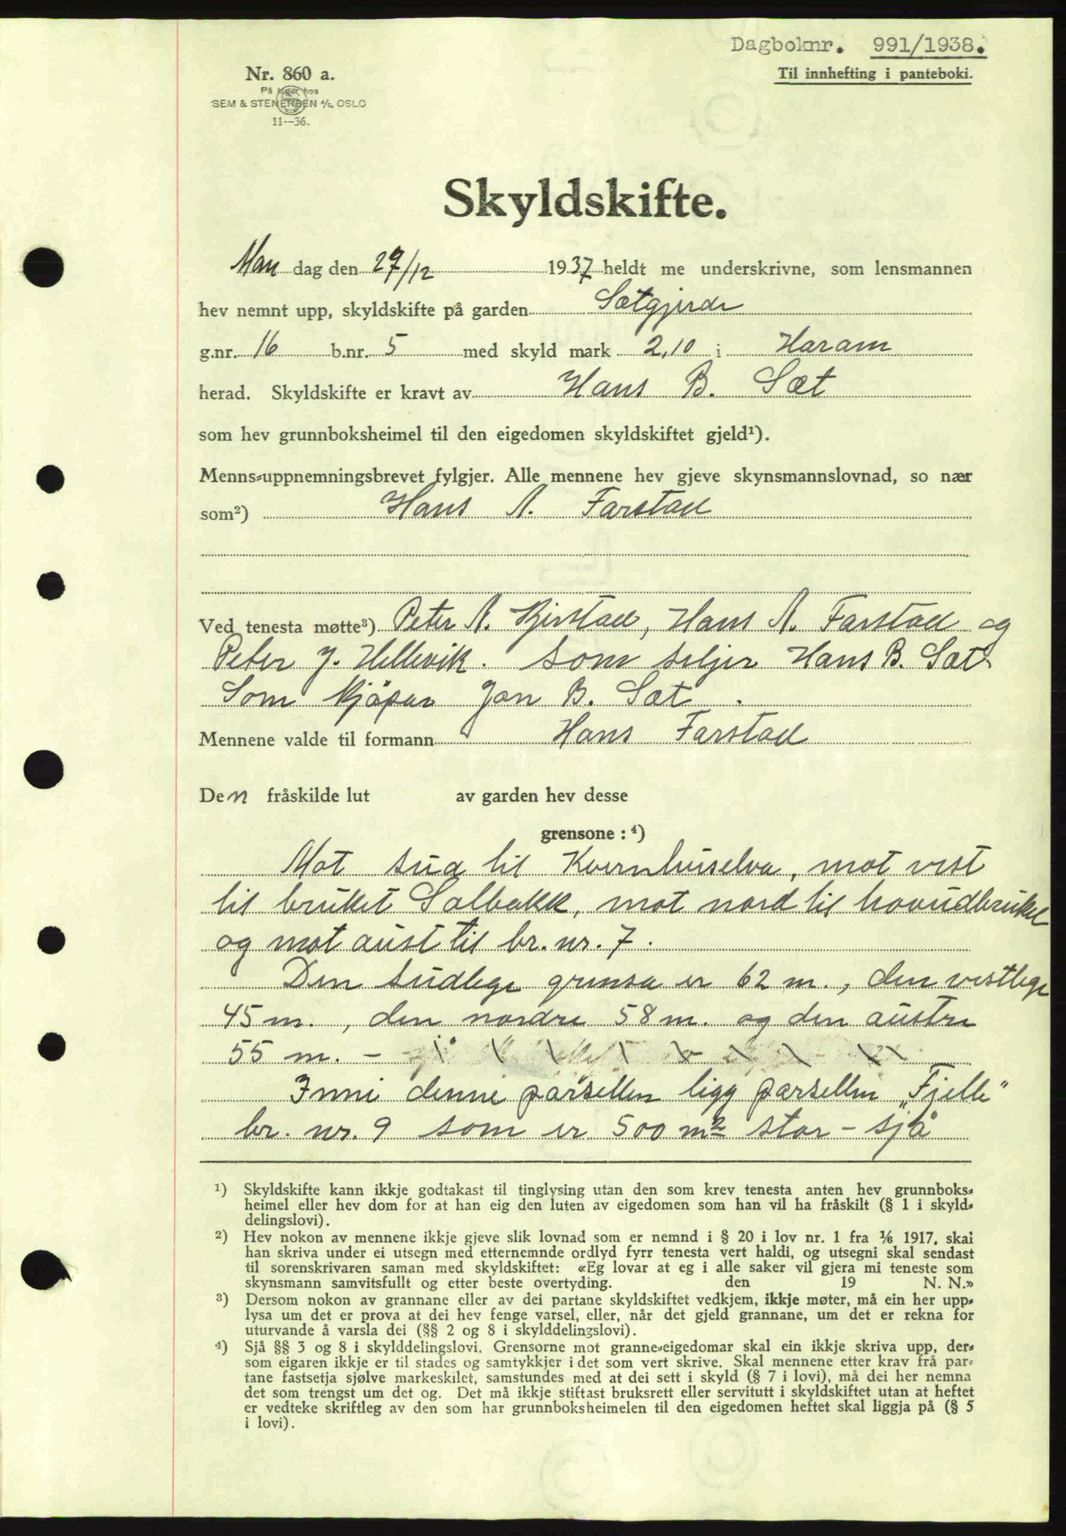 Dagboknr. 991/1938.
Til innhefting i panteboki.
Nr. 860 a.
På lager hos
SEM & STENERSEN A/S, OSLO
11--36.
Skyldskifte.
Man dag den 27/12 1937 heldt me underskrivne, som lensmannen
hev nemnt upp, skyldskifte på garden Sætgjerde
g.nr. 16 b.nr. 5 med skyld mark 2,10 i Haram
herad. Skyldskifte er kravt av Hans B. Sæt
som hev grunnboksheimel til den eigedomen skyldskiftet gjeld¹).
Menns-uppnemningsbrevet fylgjer. Alle mennene hev gjeve skynsmannslovnad, so nær
som²) Hans A. Farstad
Ved tenesta møtte³) Peter A. Kjerstad, Hans A. Farstad og
Peter J. Hellevik. Som seljer Hans B. Sæt
Som kjöpar Jon B. Sæt.
Mennene valde til formann Hans Farstad
Den fråskilde lut av garden hev desse
grensone : ⁴)
Mot sud til Kvernhuselva, mot vest
til bruket Solbakk, mot nord til hovudbruket
og mot aust til br. nr. 7.
Den sudlege grensa er 62 m., den vestlege
45 m., den nordre 58 m. og den austre
55 m. -
Inni denne parsellen ligg parsellen „Fjelli"
br. nr. 9 som er 500 m² stor - sjå
¹) Skyldskifte kann ikkje godtakast til tinglysing utan den som krev tenesta anten hev grunnboks-
heimel eller hev dom for at han eig den luten av eigedomen som han vil ha fråskilt (§ 1 i skyld-
delingslovi).
²) Hev nokon av mennene ikkje gjeve slik lovnad som er nemnd i § 20 i lov nr. 1 fra ⅙ 1917, skal
han skriva under ei utsegn med etternemnde ordlyd fyrr tenesta vert haldi, og utsegni skal sendast
til sorenskrivaren saman med skyldskiftet: «Eg lovar at eg i alle saker vil gjera mi teneste som
skynsmann samvitsfullt og etter beste overtyding. den 19 N. N.»
³) Dersom nokon av grannane eller av dei partane skyldskiftet vedkjem, ikkje møter, må ein her upp-
lysa um det er prova at dei hev fenge varsel, eller, når det gjeld grannane, um det er rekna for
uturvande å varsla dei (§§ 2 og 8 i skylddelingslovi).
⁴) Sjå §§ 3 og 8 i skylddelingslovi. Grensorne mot granne-eigedomar skal ein ikkje skriva upp, der-
som eigaren ikkje er til stades og samtykkjer i det som vert skrive. Skal mennene etter krav frå par-
tane fastsetja sjølve markeskilet, samstundes med at dei sett i skyld (§ 7 i lovi), må dei her nemna
det som trengst um det og. Det må ikkje stiftast bruksrett eller servitutt i skyldskiftet utan at heftet
er vedteke skriftleg av den som har grunnboksheimelen til den eigedomen heftet skal liggja på (§ 5
i lovi).